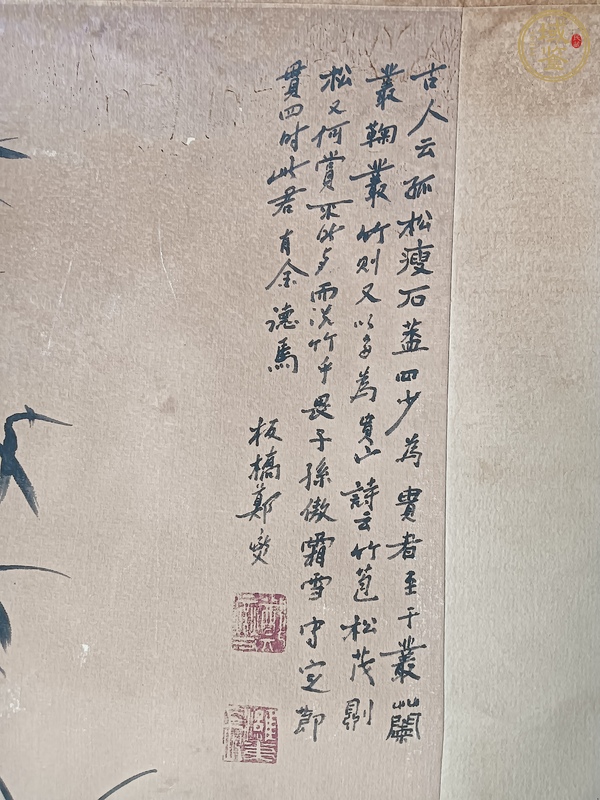 古人云孤松瘦石蓋四少為貴者至于叢蘭
叢鞠叢竹則又以多為貴小詩云竹苞松茂則
松又何賞不此多而况竹乎畏子孫傲霜雪守定節
貫四时此君有金德焉
板橋鄭燮